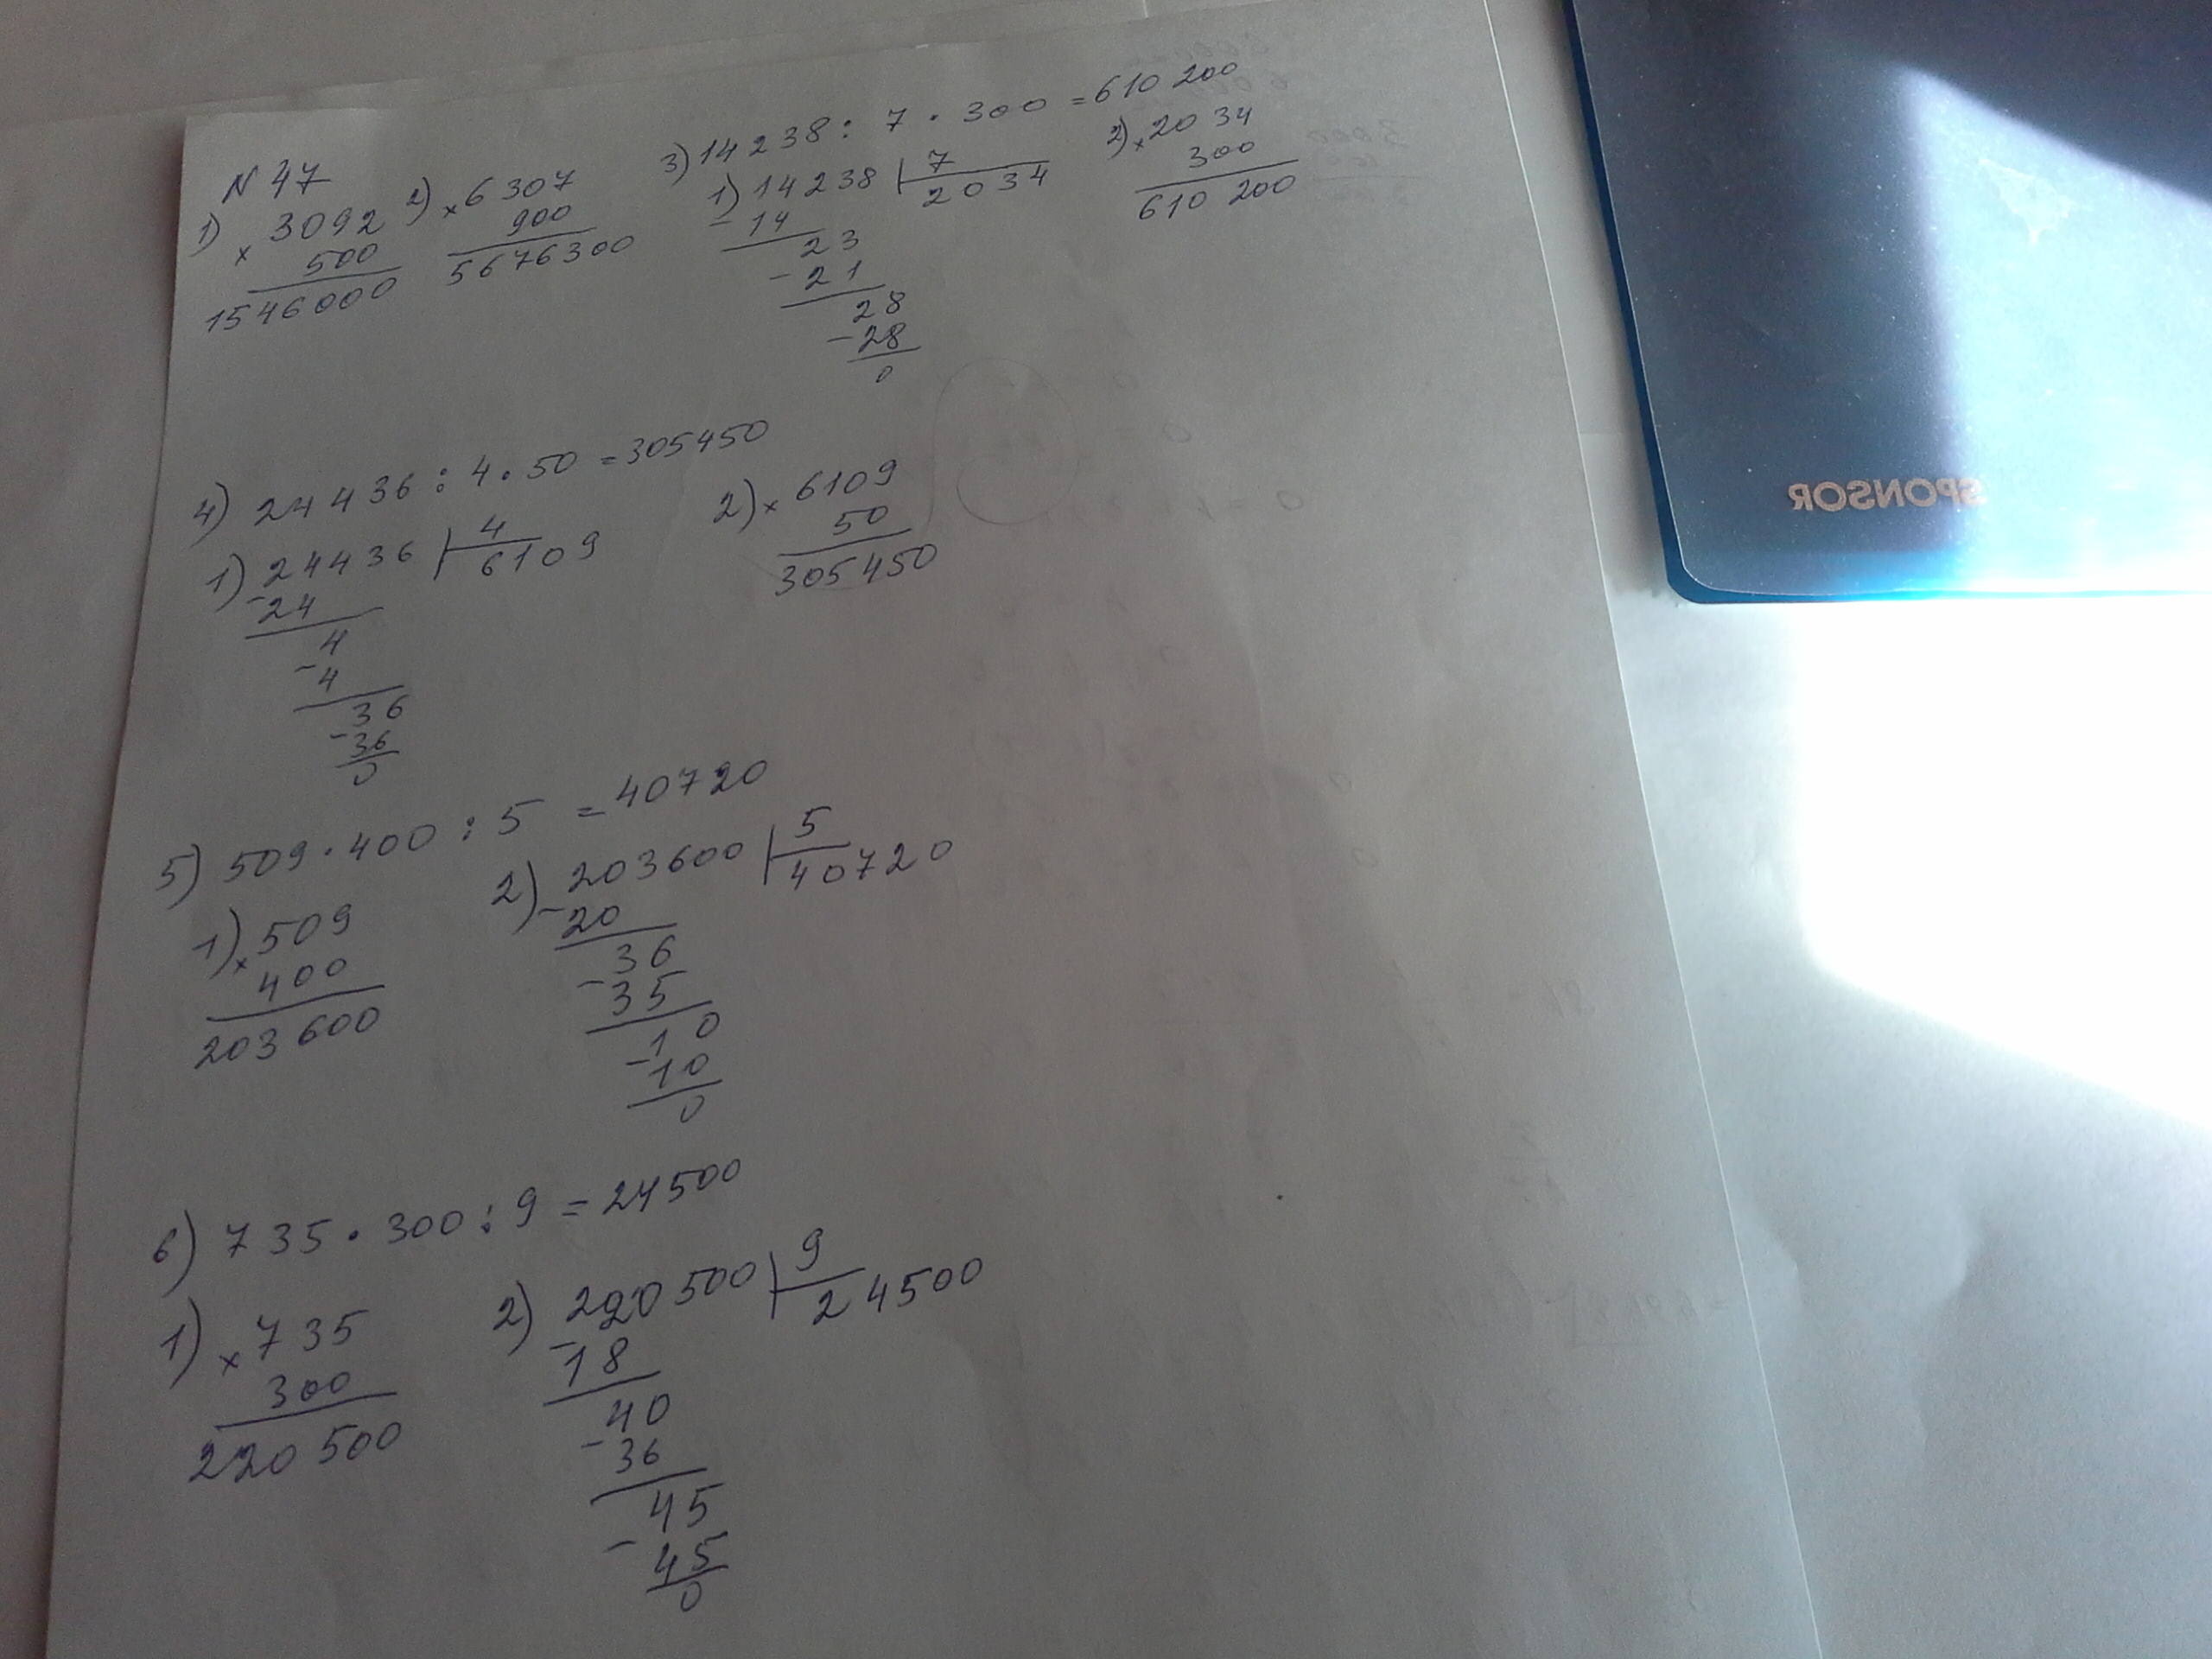 N 47
1) × 3092
500
1546000
2) × 6307
900
5676300
3) 14238 : 7 · 300 = 610 200
1) 14238 | 7
2034
- 14
23
- 21
28
- 28
0
2) × 2034
300
610 200
4) 24436 : 4 · 50 = 305450
1) 24436 | 4
6109
- 24
4
- 4
36
- 36
0
2) × 6109
50
305450
5) 509 · 400 : 5 = 40720
1) × 509
400
203600
2) 203600 | 5
40720
- 20
36
- 35
10
- 10
0
6) 735 · 300 : 9 = 24500
1) × 735
300
220 500
2) 220 500 | 9
24500
- 18
40
- 36
45
- 45
0
SPONSOR